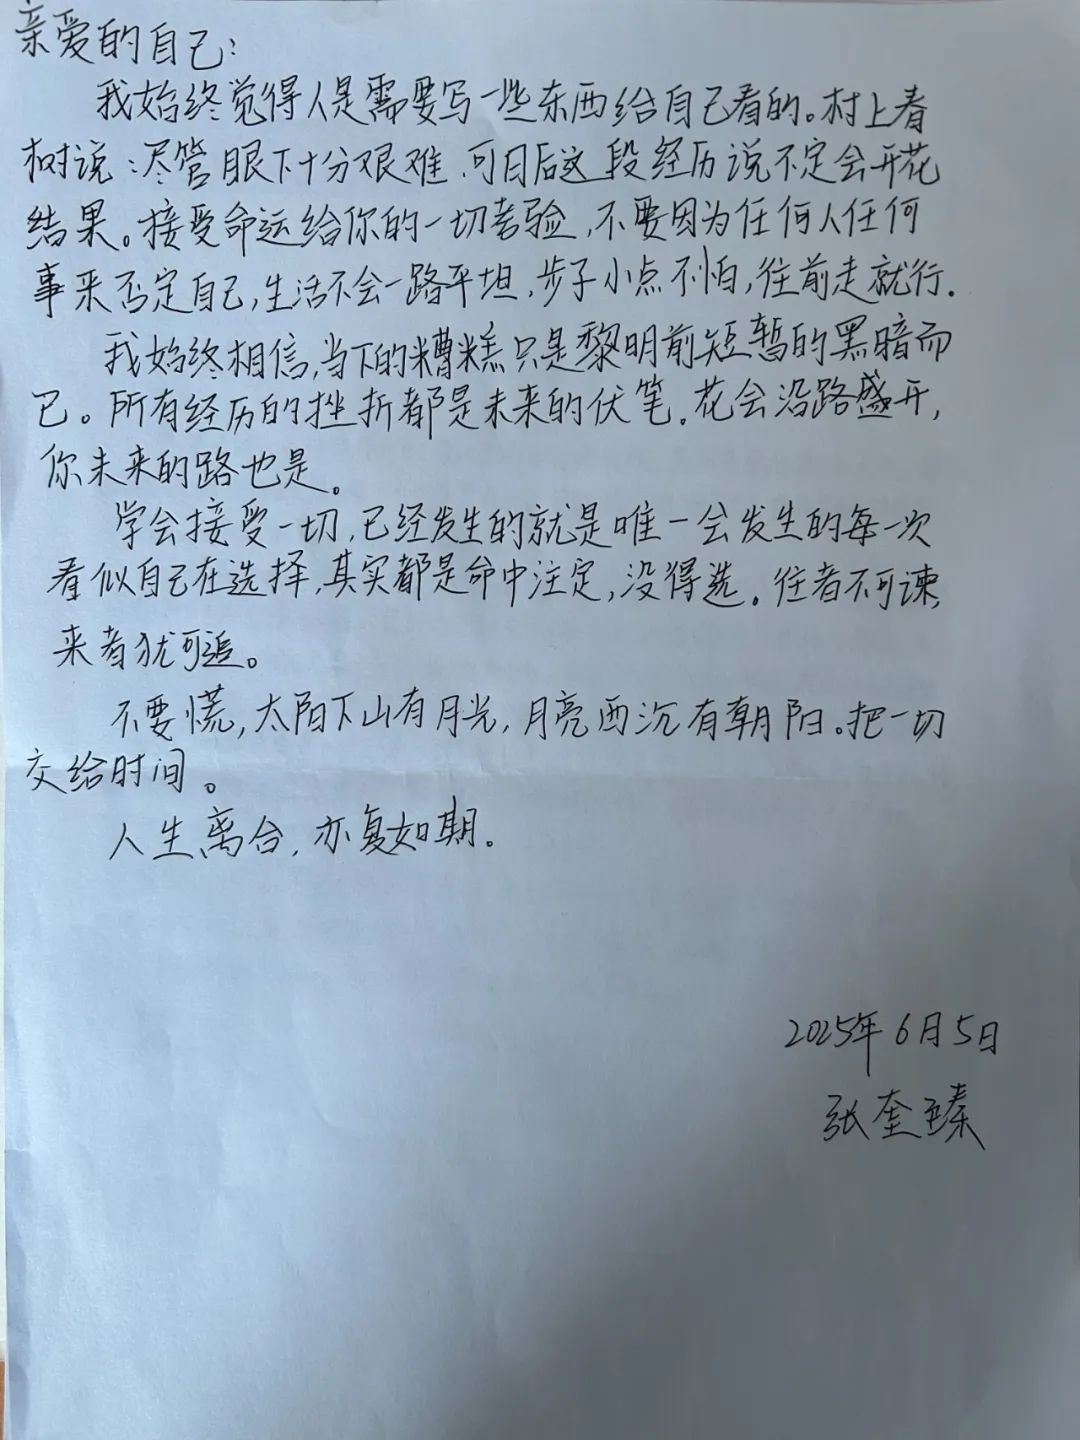 亲爱的自己：
我始终觉得人是需要写一些东西给自己看的。村上春
树说：尽管眼下十分艰难、可日后这段经历说不定会开花
结果。接受命运给你的一切考验，不要因为任何人任何
事来否定自己，生活不会一路平坦，步子小点不怕，往前走就行.
我始终相信，当下的糟糕只是黎明前短暂的黑暗而
已。所有经历的挫折都是未来的伏笔．花会沿路盛开，
你未来的路也是。
学会接受一切，已经发生的就是唯一会发生的每一次
看似自己在选择，其实都是命中注定，没得选。往者不可谏，
来者犹可追。
不要慌，太阳下山有月光，月亮西沉有朝阳。把一切
交给时间。
人生离合，亦复如期.
2025年6月5日
张奎臻